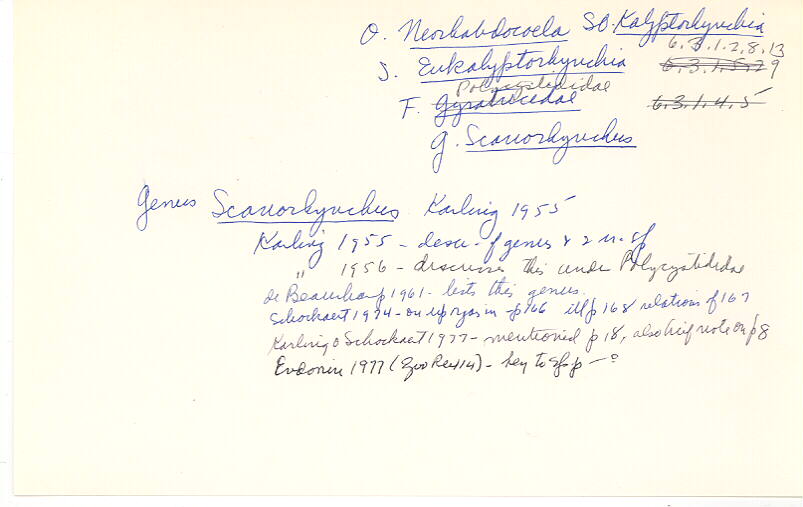 O. Neorhabdocoela SO. Kalyptorhynchia
6.3.1.2.8.13
S. Eukalyptorhynchia 6.3.1.5.29
Polycystididae
F. Gyratricidae 6.3.1.4.5
G. Scanorhynchus
Genus Scanorhynchus Karling 1955
Karling 1955 - descr. of genus & 2 n. sp
" 1956 - discusses this under Polycystididae
de Beauchamp 1961 - lists this genus.
Schockaert 1974 - on p166 ill p 168 relations p 167
Karling & Schockaert 1977 - mentioned p 18, also brief note on p 8
Evdonin 1977 (Zoo Rec 114) - key to spp -